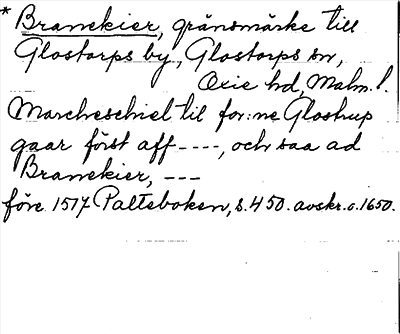 * Branekier, gränsmärke till
Glostorps by, Glostorps sn,
Oxie hd, Malm. l.
Marcheschiel til for:ne Glostrup
gaar först aff ----, och saa ad
Branekier, ---
före 1517 Palteboken, s. 450. avskr. c. 1650.